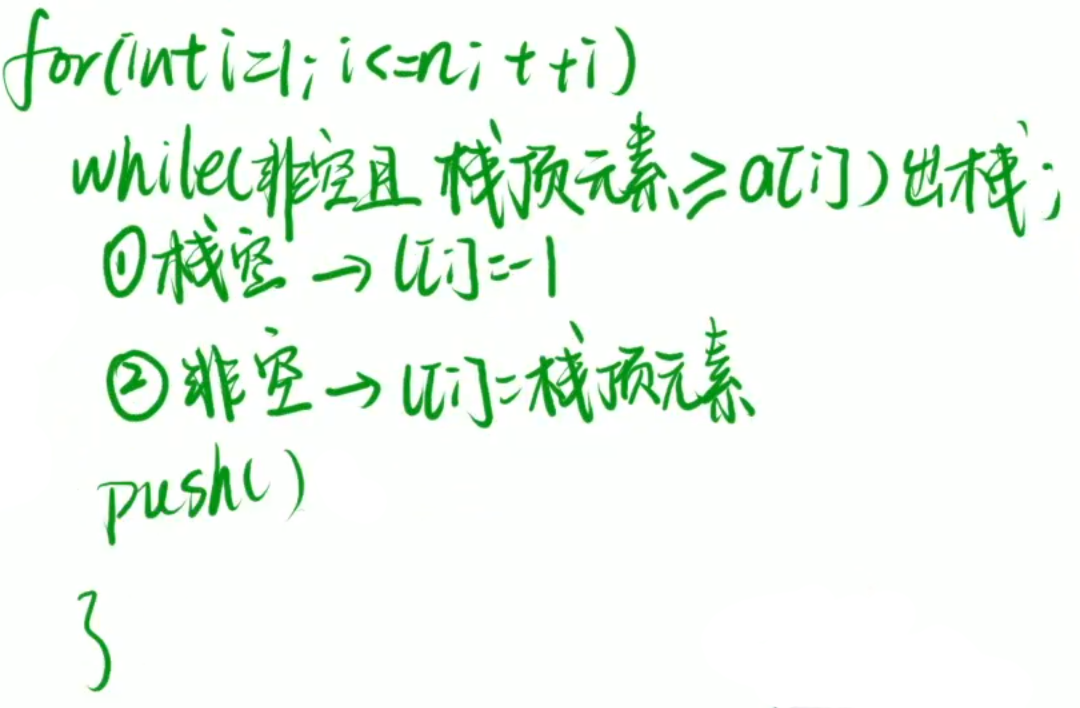 for(int i=1; i<=n; ++i)
while(非空且 栈顶元素≥a[i])出栈;
①栈空→l[i]=-1
②非空→l[i]=栈顶元素
push()
}